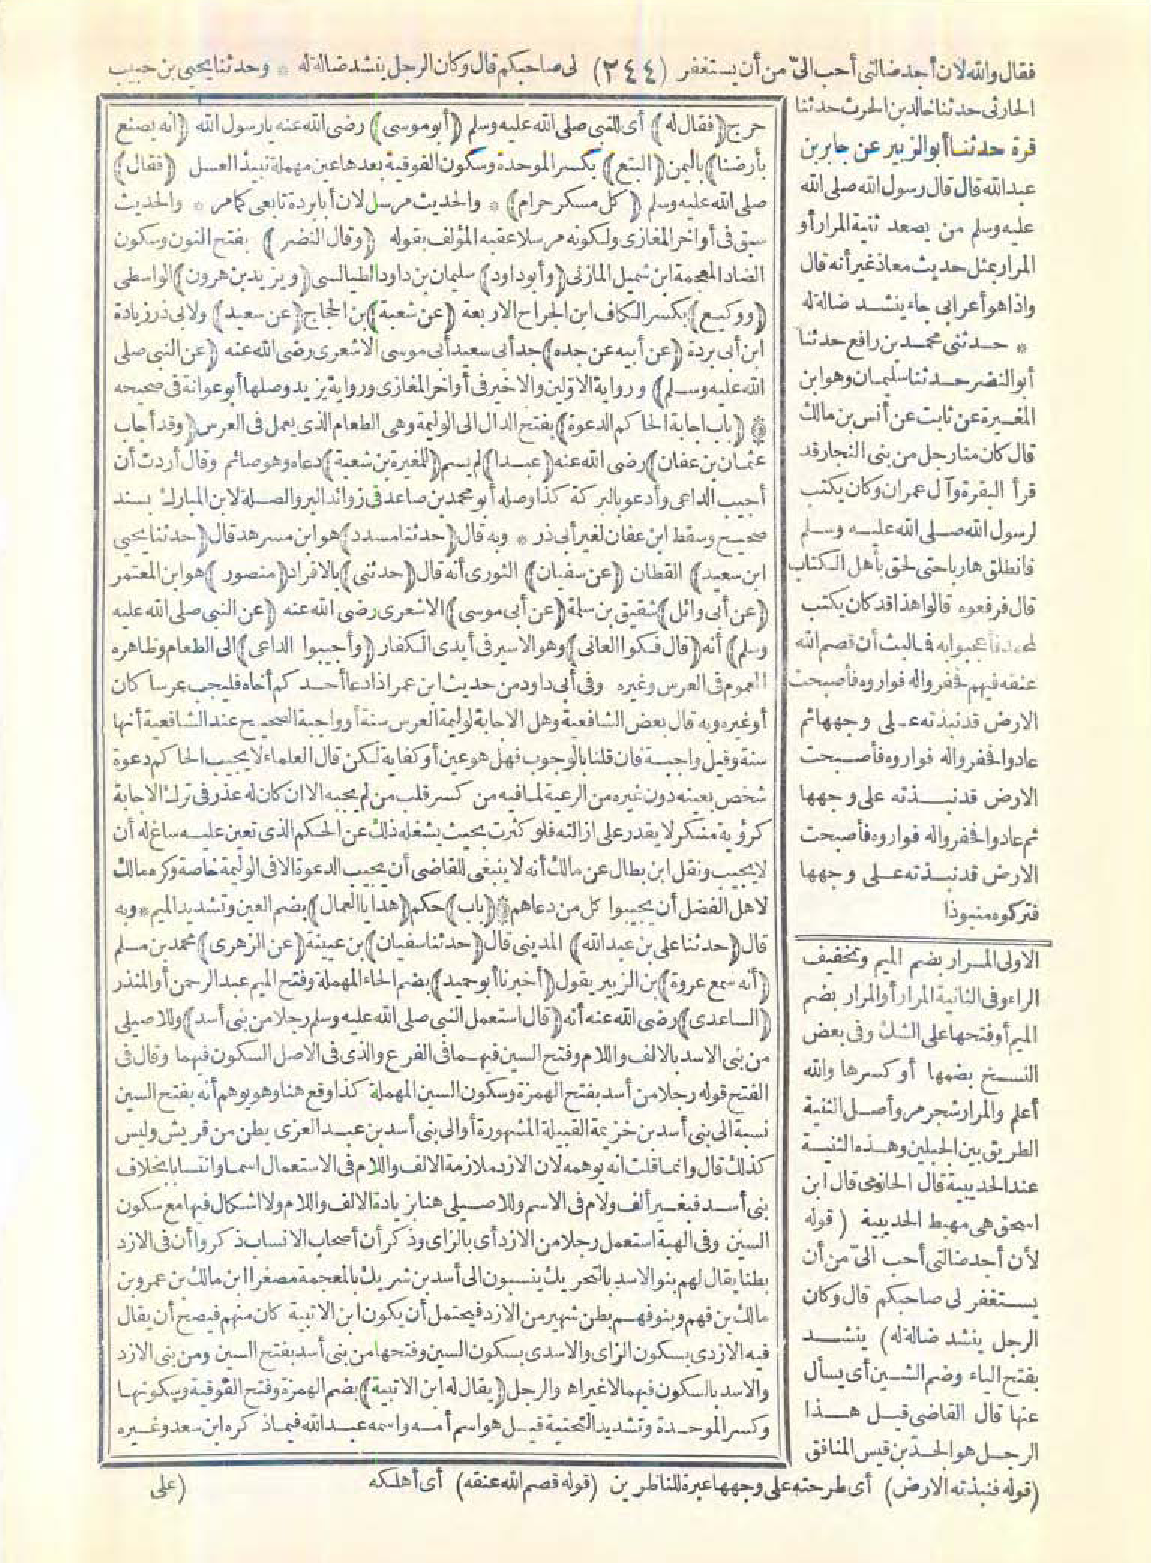 فقال والله لان أجد ضالتى أحب الىّ من أن يستغفر (٢٤٤) لى صاحبكم قال وكان الرجل ينشد ضالة له * وحدثنا يحيى بن حبيب
الحارثى حدثنا خالد بن الحرث حدثنا
قرة حدثنا أبو الزبير عن جابر بن
عبد الله قال قال رسول الله صلى الله
عليه وسلم من يصعد ثنية المرار أو
المرار بمثل حديث معاذ غير أنه قال
واذا هو أعرابى جاء ينشد ضالة له
* حدثنى محمد بن رافع حدثنا
أبو النضر حدثنا سليمان وهو ابن
المغيرة عن ثابت عن أنس بن مالك
قال كان منا رجل من بنى النجار قد
قرأ البقرة وآل عمران وكان يكتب
لرسول الله صلى الله عليه وسلم
فانطلق هاربا حتى لحق بأهل الكتاب
قال فرفعوه قالوا هذا قد كان يكتب
لمحمد فأعجبوا به فما لبث أن قصم الله
عنقه فيهم فحفروا له فواروه فأصبحت
الارض قد نبذته على وجهها ثم
عادوا فحفروا له فواروه فأصبحت
الارض قد نبذته على وجهها
ثم عادوا فحفروا له فواروه فأصبحت
الارض قد نبذته على وجهها
فتركوه منبوذا
الاولى المرار بضم الميم وتخفيف
الراء وفى الثانية المرار أو المرار بضم
الميم أو فتحها على الشك وفى بعض
النسخ بضمها أو كسرها والله
أعلم والمرار شجر مر وأصل الثنية
الطريق بين الجبلين وهذه الثنية
عند الحديبية قال الحازمى قال ابن
اسحق هى مهبط الحديبية (قوله
لأن أجد ضالتى أحب الىّ من أن
يستغفر لى صاحبكم قال وكان
الرجل ينشد ضالة له) ينشد
بفتح الياء وضم الشين أى يسأل
عنها قال القاضى قيل هذا
الرجل هو الجد بن قيس المنافق
(قوله فنبذته الارض) أى طرحته على وجهها عبرة للناظرين (قوله قصم الله عنقه) أى أهلكه (على
حرج (فقال له) أى للنبى صلى الله عليه وسلم (أبو موسى) رضى الله عنه يارسول الله (انه يصنع
بأرضنا) باليمن (البتع) بكسر الموحدة وسكون الفوقية بعدها عين مهملة نبيذ العسل (فقال)
صلى الله عليه وسلم (كل مسكر حرام) * والحديث مرسل لان أبا بردة تابعى كما مر * والحديث
سبق فى أواخر المغازى ولكونه مرسلا عقبه المؤلف بقوله (وقال النضر) بفتح النون وسكون
الضاد المعجمة ابن شميل المازنى (وأبو داود) سليمان بن داود الطيالسى (ويزيد بن هرون) الواسطى
(ووكيع) بكسر الكاف ابن الجراح الاربعة (عن شعبة) بن الحجاج (عن سعيد) ولابى ذر زيادة
ابن أبى بردة (عن أبيه عن جده) جد أبى سعيد أبى موسى الاشعرى رضى الله عنه (عن النبى صلى
الله عليه وسلم) ورواية الاولين والاخير فى أواخر المغازى ورواية يزيد وصلها أبو عوانة فى صحيحه
* (باب اجابة الحاكم الدعوة) بفتح الدال الى الوليمة وهى الطعام الذى يعمل فى العرس (وقد أجاب
عثمان بن عفان) رضى الله عنه (عبدا) لم يسم (للمغيرة بن شعبة) دعاه وهو صائم وقال أردت أن
أجيب الداعى وأدعو بالبركة كذا وصله أبو محمد بن صاعد فى زوائد البر والصلة لابن المبارك بسند
صحيح وسقط ابن عفان لغير أبى ذر * وبه قال (حدثنا مسدد) هو ابن مسرهد قال (حدثنا يحيى
ابن سعيد) القطان (عن سفيان) الثورى أنه قال (حدثنى) بالافراد (منصور) هو ابن المعتمر
(عن أبى وائل) شقيق بن سلمة (عن أبى موسى) الاشعرى رضى الله عنه (عن النبى صلى الله عليه
وسلم) أنه (قال فكوا العانى) وهو الاسير فى أيدى الكفار (وأجيبوا الداعى) الى الطعام وظاهره
العموم فى العرس وغيره وفى أبى داود من حديث ابن عمر اذا دعا أحدكم أخاه فليجب عرسا كان
أو غيره وبه قال بعض الشافعية وهل الاجابة لوليمة العرس سنة أو واجبة الصحيح عند الشافعية أنها
سنة وقيل واجبة فان قلنا بالوجوب فهل هو عين أو كفاية لكن قال العلماء لا يجيب الحاكم دعوة
شخص بعينه دون غيره من الرعية لما فيه من كسر قلب من لم يجبه الا ان كان له عذر فى ترك الاجابة
كرؤية منكر لا يقدر على ازالته فلو كثرت بحيث يشغله ذلك عن الحكم الذى تعين عليه ساغ له أن
لا يجيب ونقل ابن بطال عن مالك أنه لا ينبغى للقاضى أن يجيب الدعوة الا فى الوليمة خاصة وكره مالك
لاهل الفضل أن يجيبوا كل من دعاهم * (باب) حكم (هدايا العمال) بضم العين وتشديد الميم * وبه
قال (حدثنا على بن عبد الله) المدينى قال (حدثنا سفيان) بن عيينة (عن الزهرى) محمد بن مسلم
(أنه سمع عروة) بن الزبير يقول (أخبرنا أبو حميد) بضم الحاء المهملة وفتح الميم عبد الرحمن أو المنذر
(الساعدى) رضى الله عنه أنه (قال استعمل النبى صلى الله عليه وسلم رجلا من بنى أسد) وللاصيلى
من بنى الاسد بالالف واللام وفتح السين فيهما فى الفرع والذى فى الاصل السكون فيهما وقال فى
الفتح قوله رجلا من أسد بفتح الهمزة وسكون السين المهملة كذا وقع هنا وهو يوهم أنه بفتح السين
نسبة الى بنى أسد بن خزيمة القبيلة المشهورة أو الى بنى أسد بن عبد العزى بطن من قريش وليس
كذلك قال وانما قلت انه يوهمه لان الازد ملازمة الالف واللام فى الاستعمال اسما وانتسابا بخلاف
بنى أسد فبغير ألف ولام فى الاسم وللاصيلى هنا بزيادة الالف واللام ولا اشكال فيها مع سكون
السين وفى الهبة استعمل رجلا من الازد أى بالزاى وذكر أن أصحاب الانساب ذكروا أن فى الازد
بطنا يقال لهم بنو الاسد بالتحريك ينسبون الى أسد بن شريك بالمعجمة مصغرا ابن مالك بن عمرو بن
مالك بن فهم وبنو فهم بطن شهير من الازد فيحتمل أن يكون ابن الاتبية كان منهم فيصح أن يقال
فيه الازدى بسكون الزاى والاسدى بسكون السين وفتحها من بنى أسد بفتح السين ومن بنى الازد
والاسد بالسكون فيهما لاغير اه والرجل (يقال له ابن الاتبية) بضم الهمزة وفتح الفوقية وسكونها
وكسر الموحدة وتشديد التحتية قيل هو اسم أمه واسمه عبد الله فيما ذكره ابن سعد وغيره